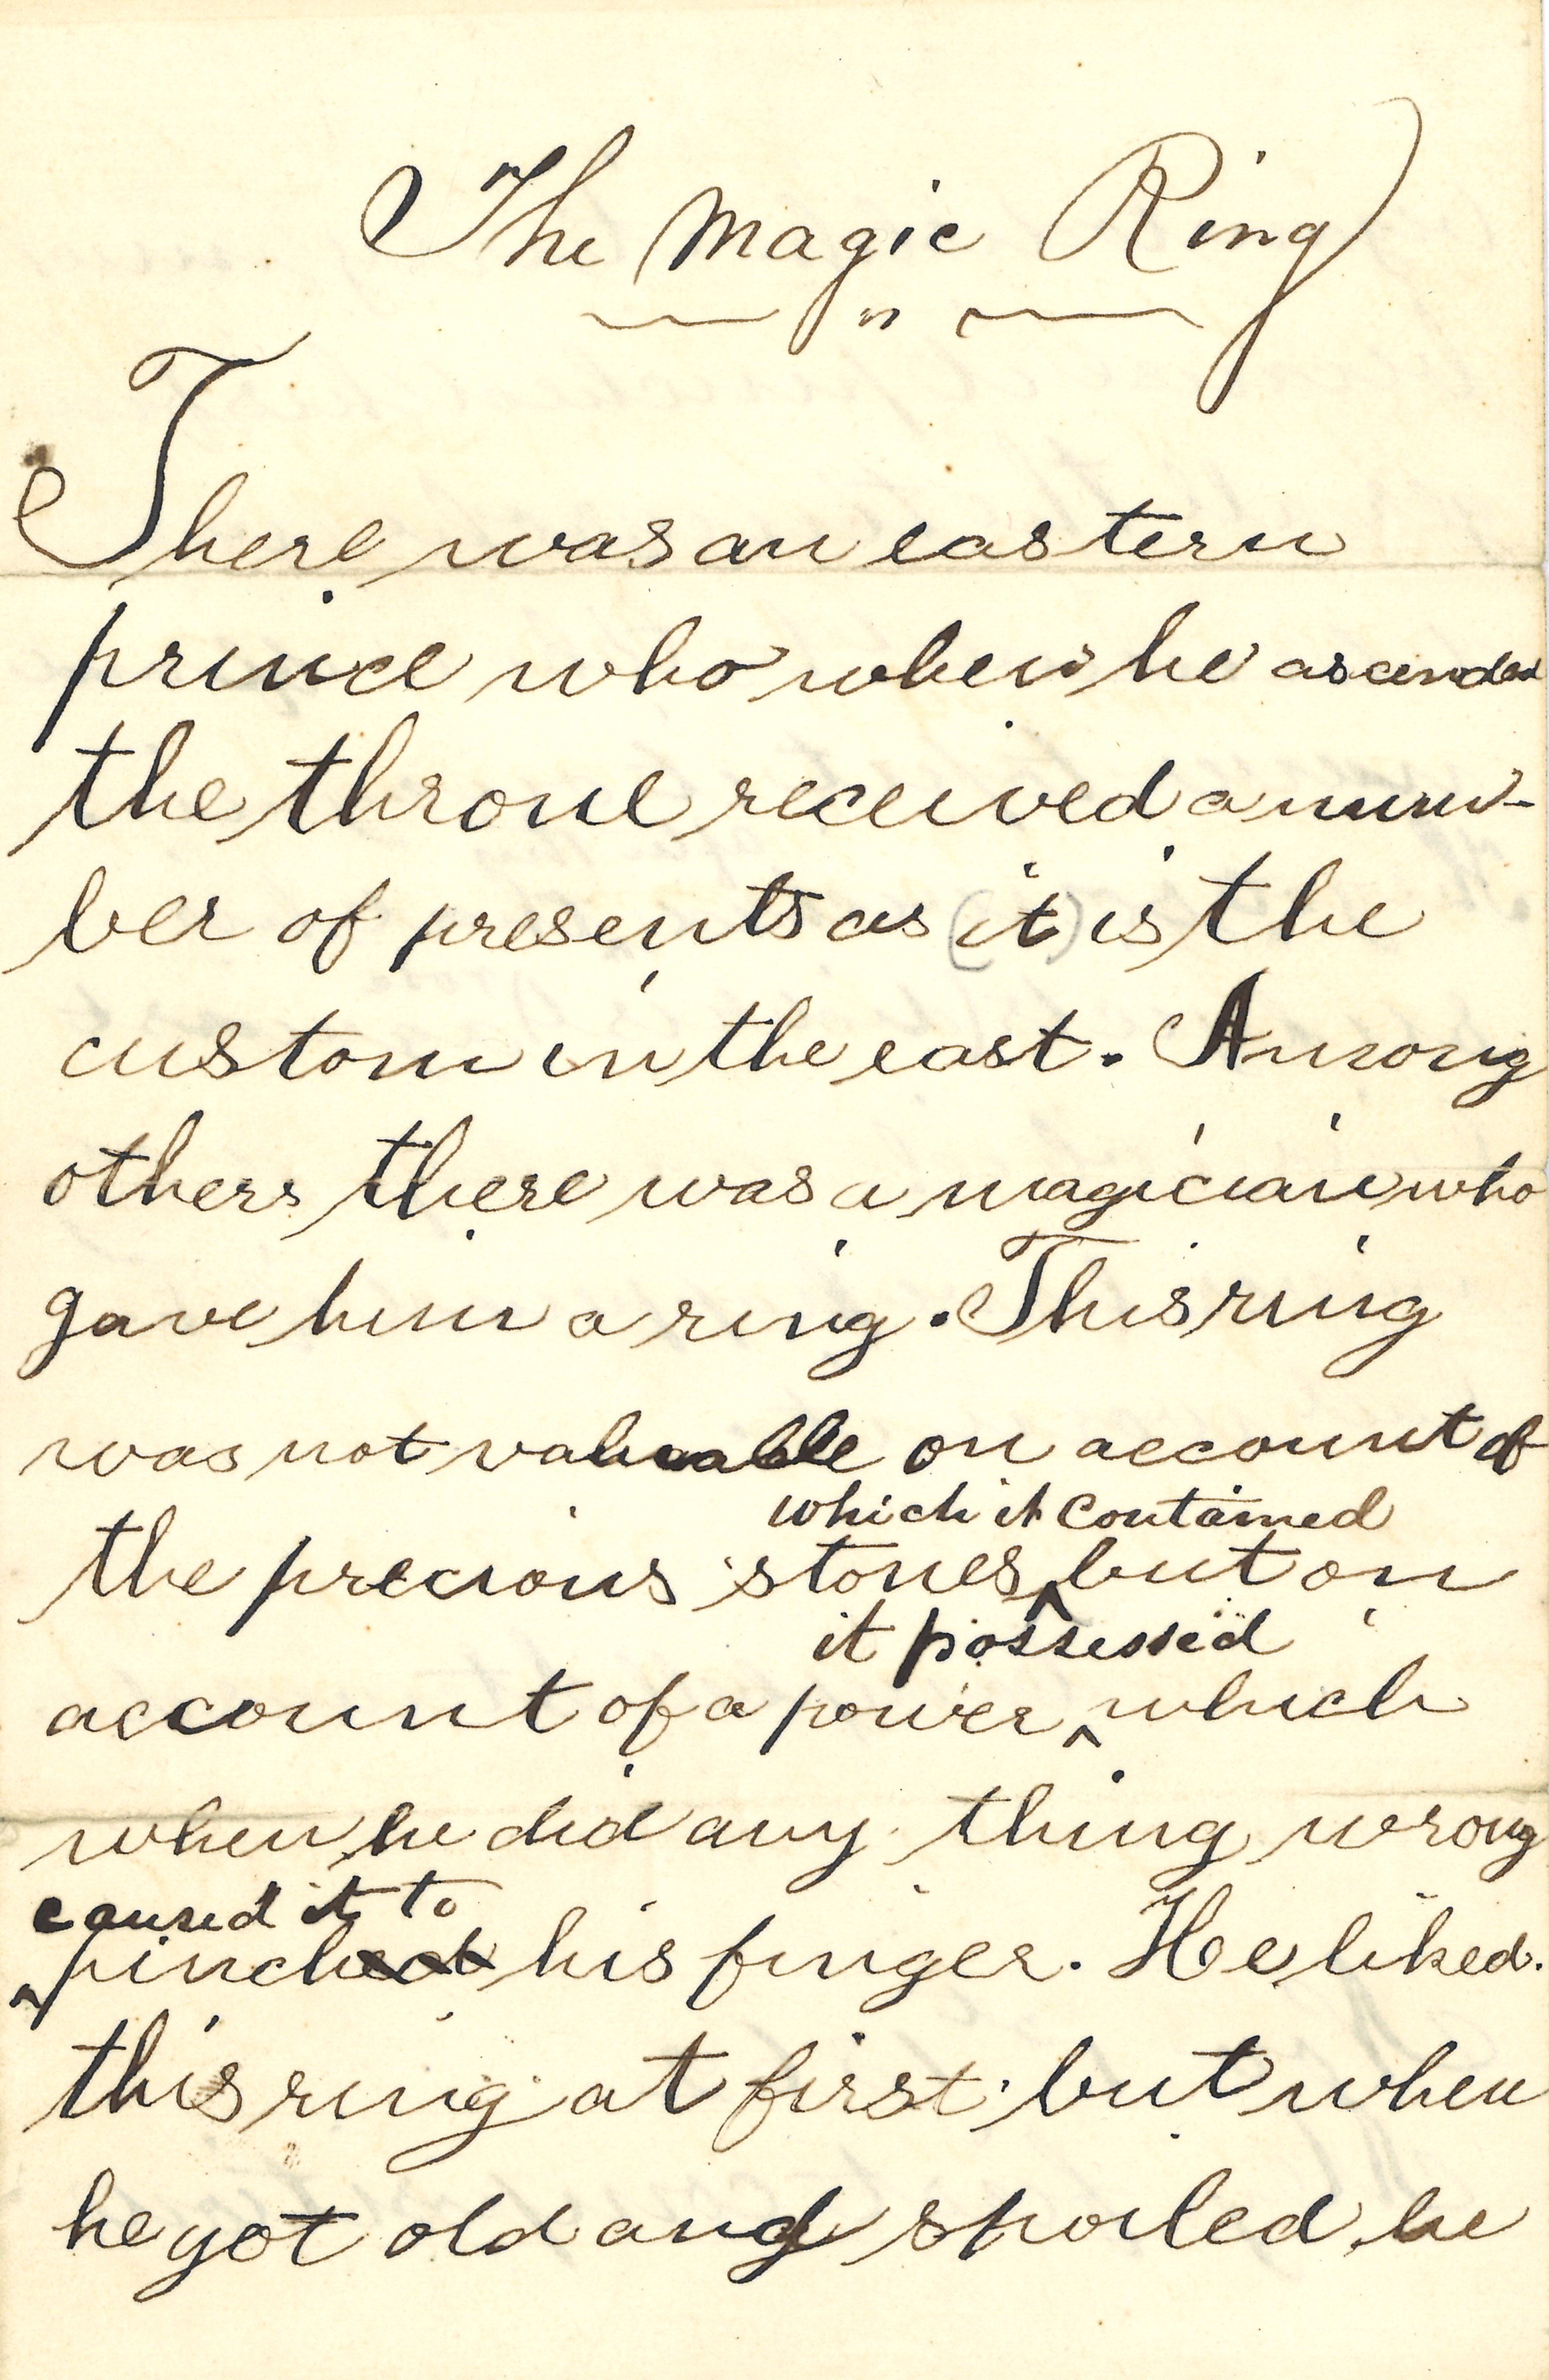 The Magic Ring
There was an eastern
prince who when he ascended
the throne received a num-
ber of presents as (it) is the
custom in the east. Among
others there was a magician who
gave him a ring. This ring
was not valuable on account of
which it contained
the precious stones ^ but on
it possessed
account of a power ^ which
when he did any thing wrong
caused it to
^ pinched his finger. He liked.
this ring at first but when
he got old and spoiled he